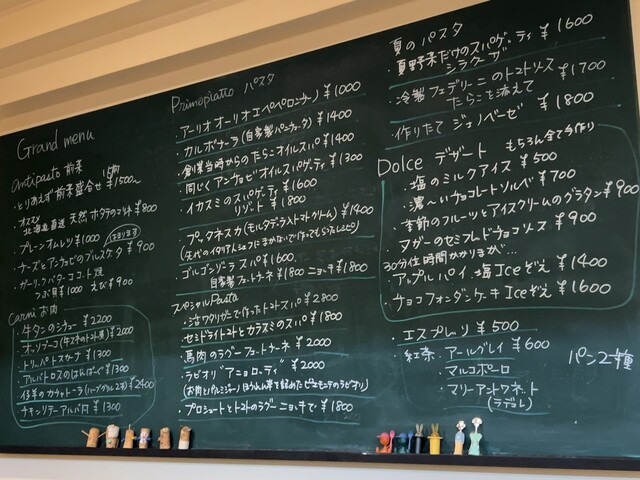 Grand menu
Antipasto 前菜
・とりあえず前菜盛合せ ¥1500〜
オススメ
北海道直送 天然ホタテのソテー ¥800
・プレーンオムレツ ¥1000
・チーズとアンチョビのブルスケタ ¥900
・ガーリックバターココット焼
つぶ貝 ¥1000 えび ¥900
Carni お肉
・牛タンのシチュー ¥2200
・オッソブーコ(牛スネのトマト煮) ¥2000
・トリッパトスカーナ ¥1300
・アルバトロスのはんばーぐ ¥1300
・仔羊のカチャトーラ ¥2400
・チキンソテーアルパロ ¥1300
Primopiatto パスタ
・アーリオオーリオエ(ペペロンチーノ) ¥1000
・カルボナーラ(自家製パンチェッタ) ¥1400
・創業当時からのたらこオイルスパ ¥1400
・同じくアンチョビオイルスパゲッティ ¥1300
・イカスミのスパゲッティ ¥1600
リゾット ¥1800
・プッタネスカ(モルタデライトマトクリーム) ¥1400
(先代のイタリア人シェフにまかないで作ってもらったレシピ)
・ゴルゴンゾーラ スパ ¥1600
自家製フェットチーネ ¥1800 ニョッキ ¥1800
スペシャルPasta
・渡りガニで作ったトマトスパ ¥2800
・セミドライトマトとカラスミのスパ ¥1800
・馬肉のラグーフェットチーネ ¥2000
・ラビオリ"アニョロッティ" ¥2000
・プロシュートとトマトのラグー ニョッキで ¥1800
夏のパスタ
・夏野菜だけのスパゲッティ ¥1600
シラクーザ
・冷製フェデリーニのトマトソース ¥1700
たらこを添えて
・作りたてジェノベーゼ ¥1800
Dolce デザート もちろん全て手作り
・塩のミルクアイス ¥500
・濃〜いチョコレートソルベ ¥700
・季節のフルーツとアイスクリームのグラタン ¥900
・ヌガーのセミフレッドチョコソース ¥900
30分位時間かかりますが…
・アップルパイ 塩Iceぞえ ¥1400
・チョコフォンダンケーキ Iceぞえ ¥1600
・エスプレッソ ¥500
・紅茶 アールグレイ ¥600
マルコポーロ
マリーアントワネット
(ラデュレ)
パン2種